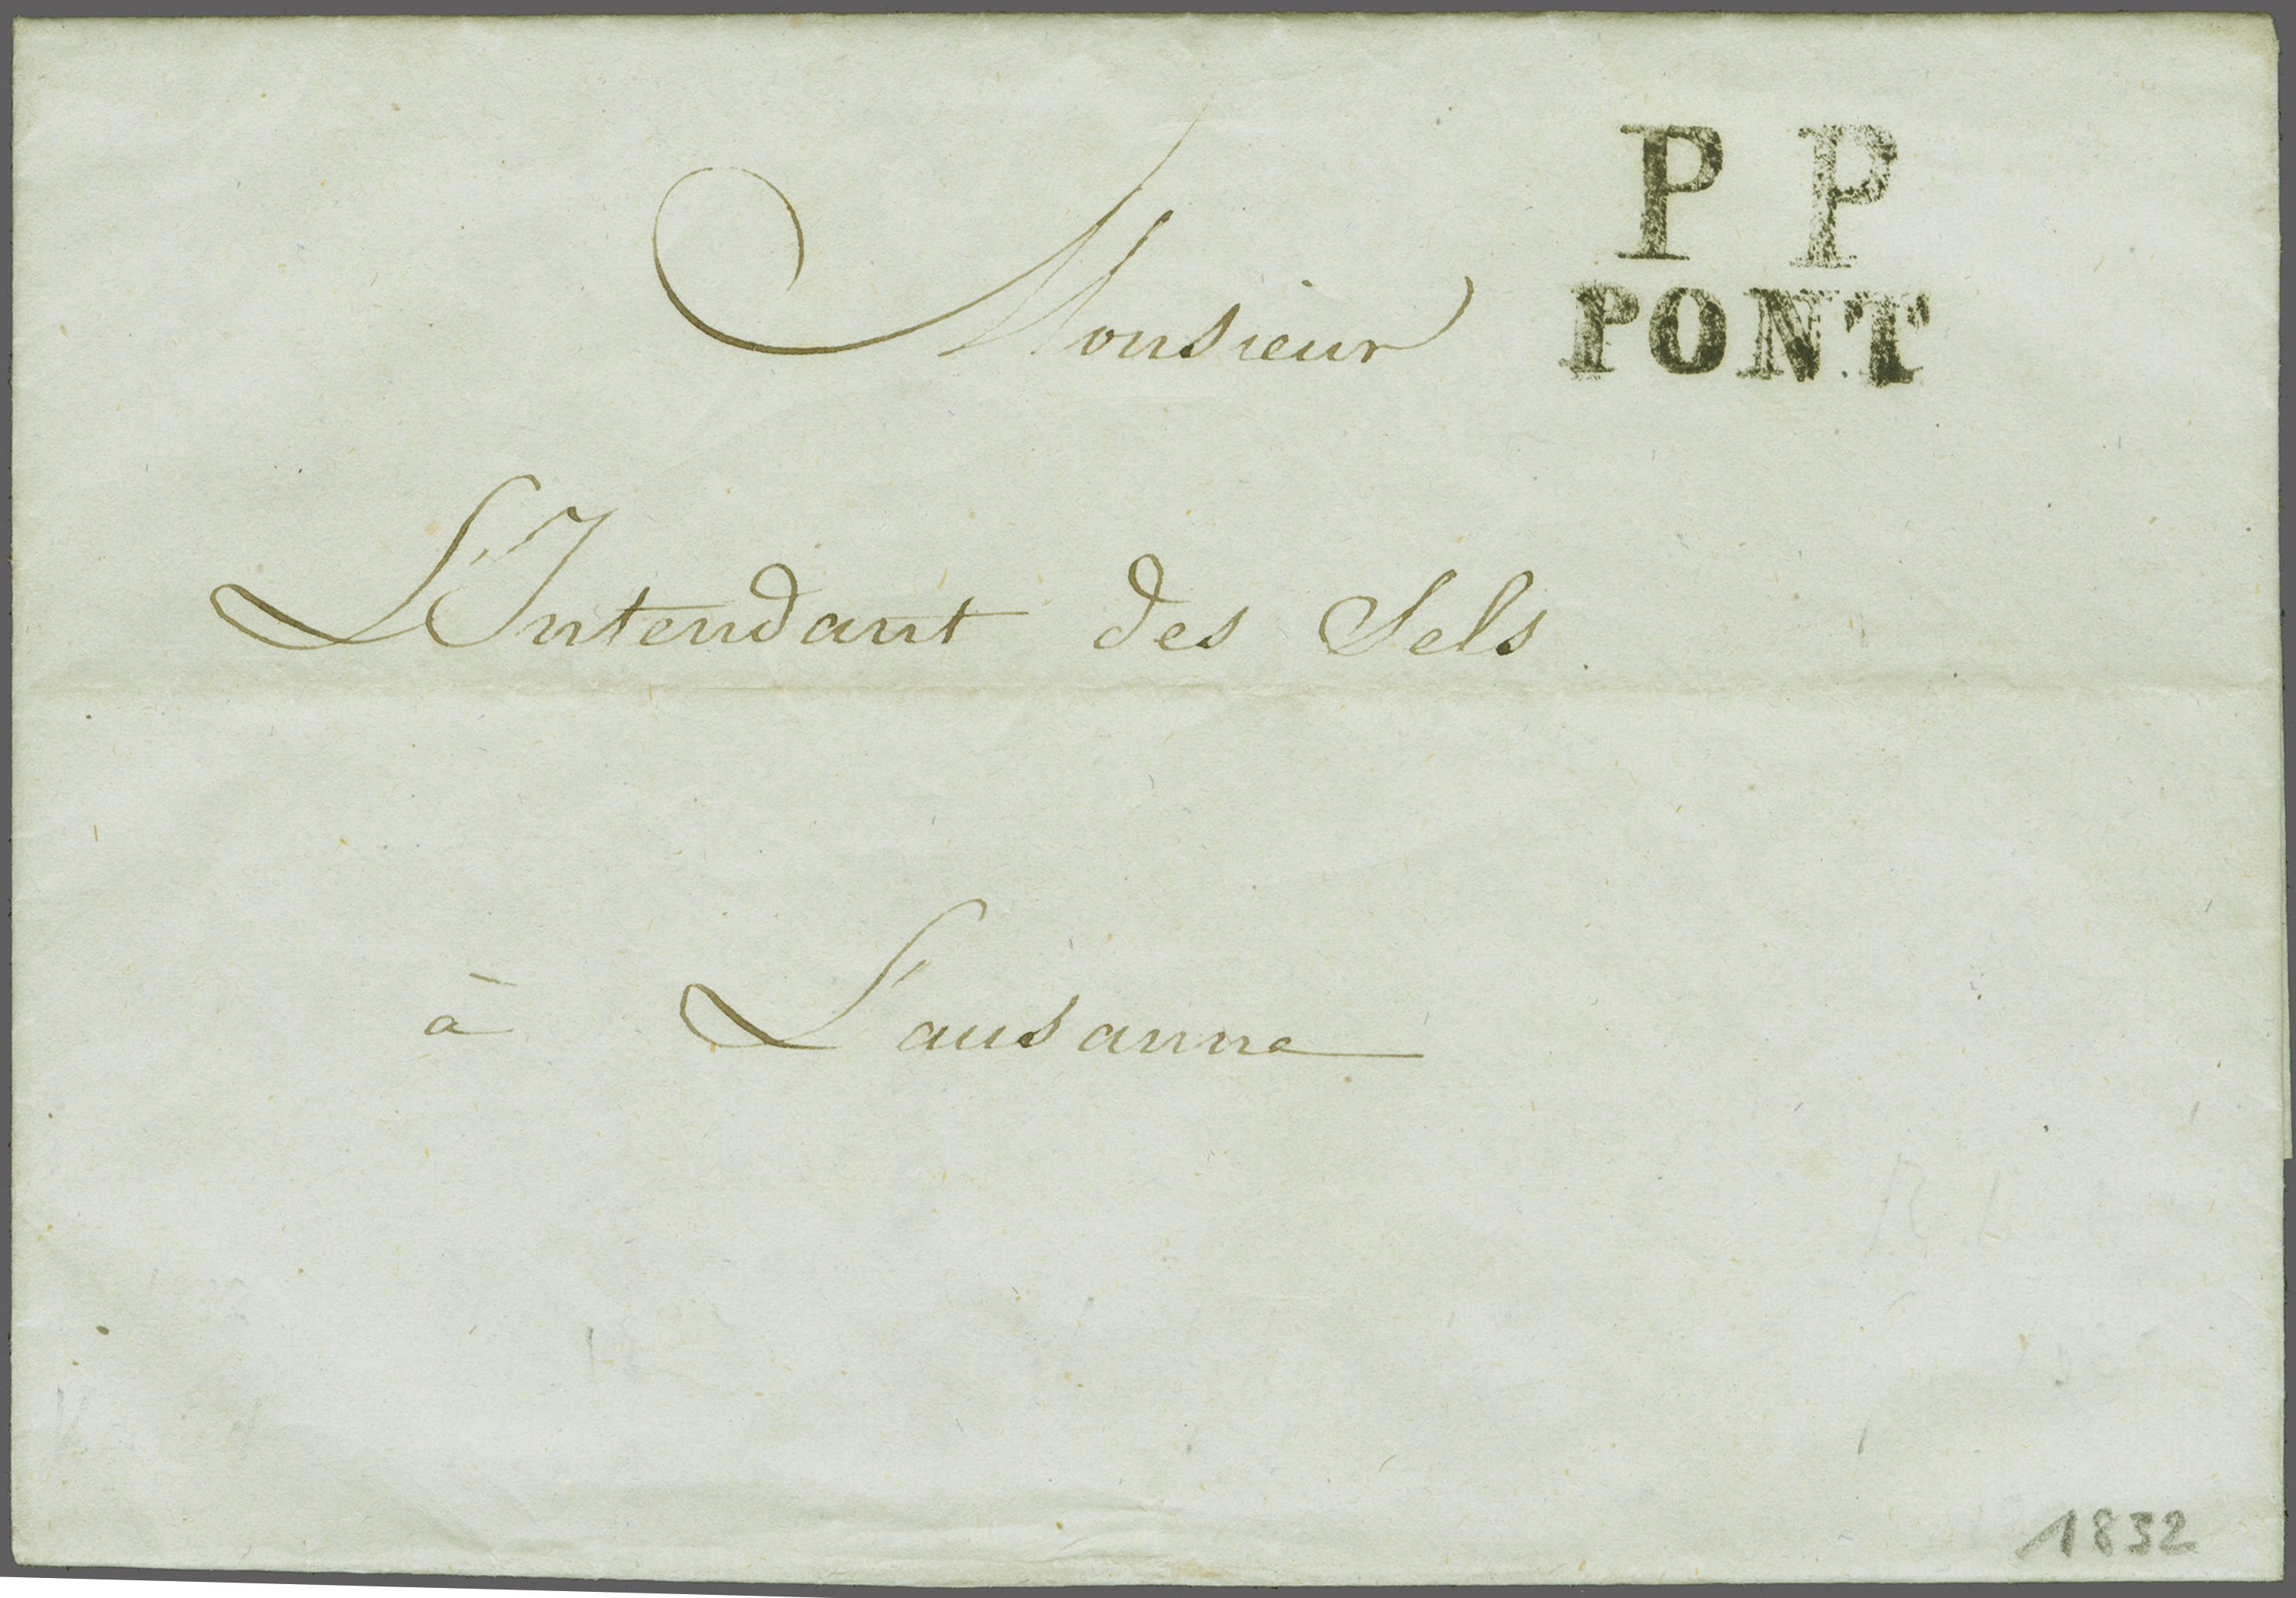 P P
PONT
Monsieur
L'Intendant des Sels
à Lausanne
1832